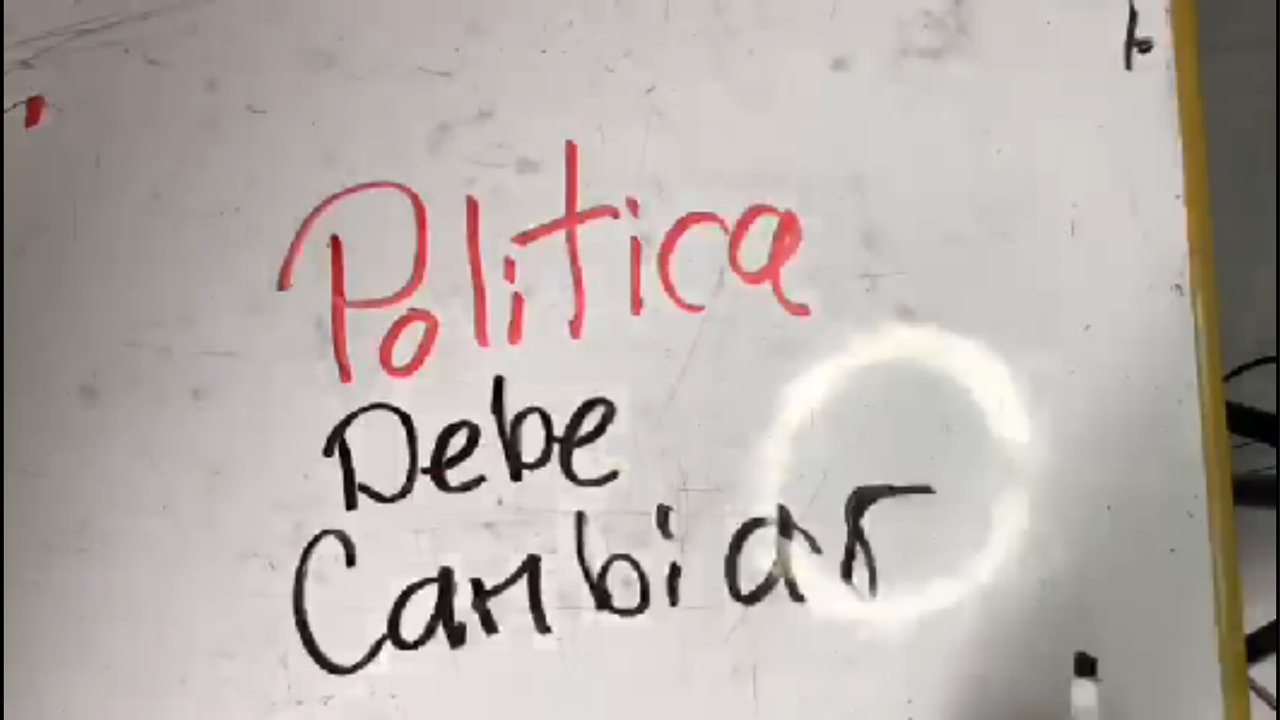 Politica
Debe
Cambiar